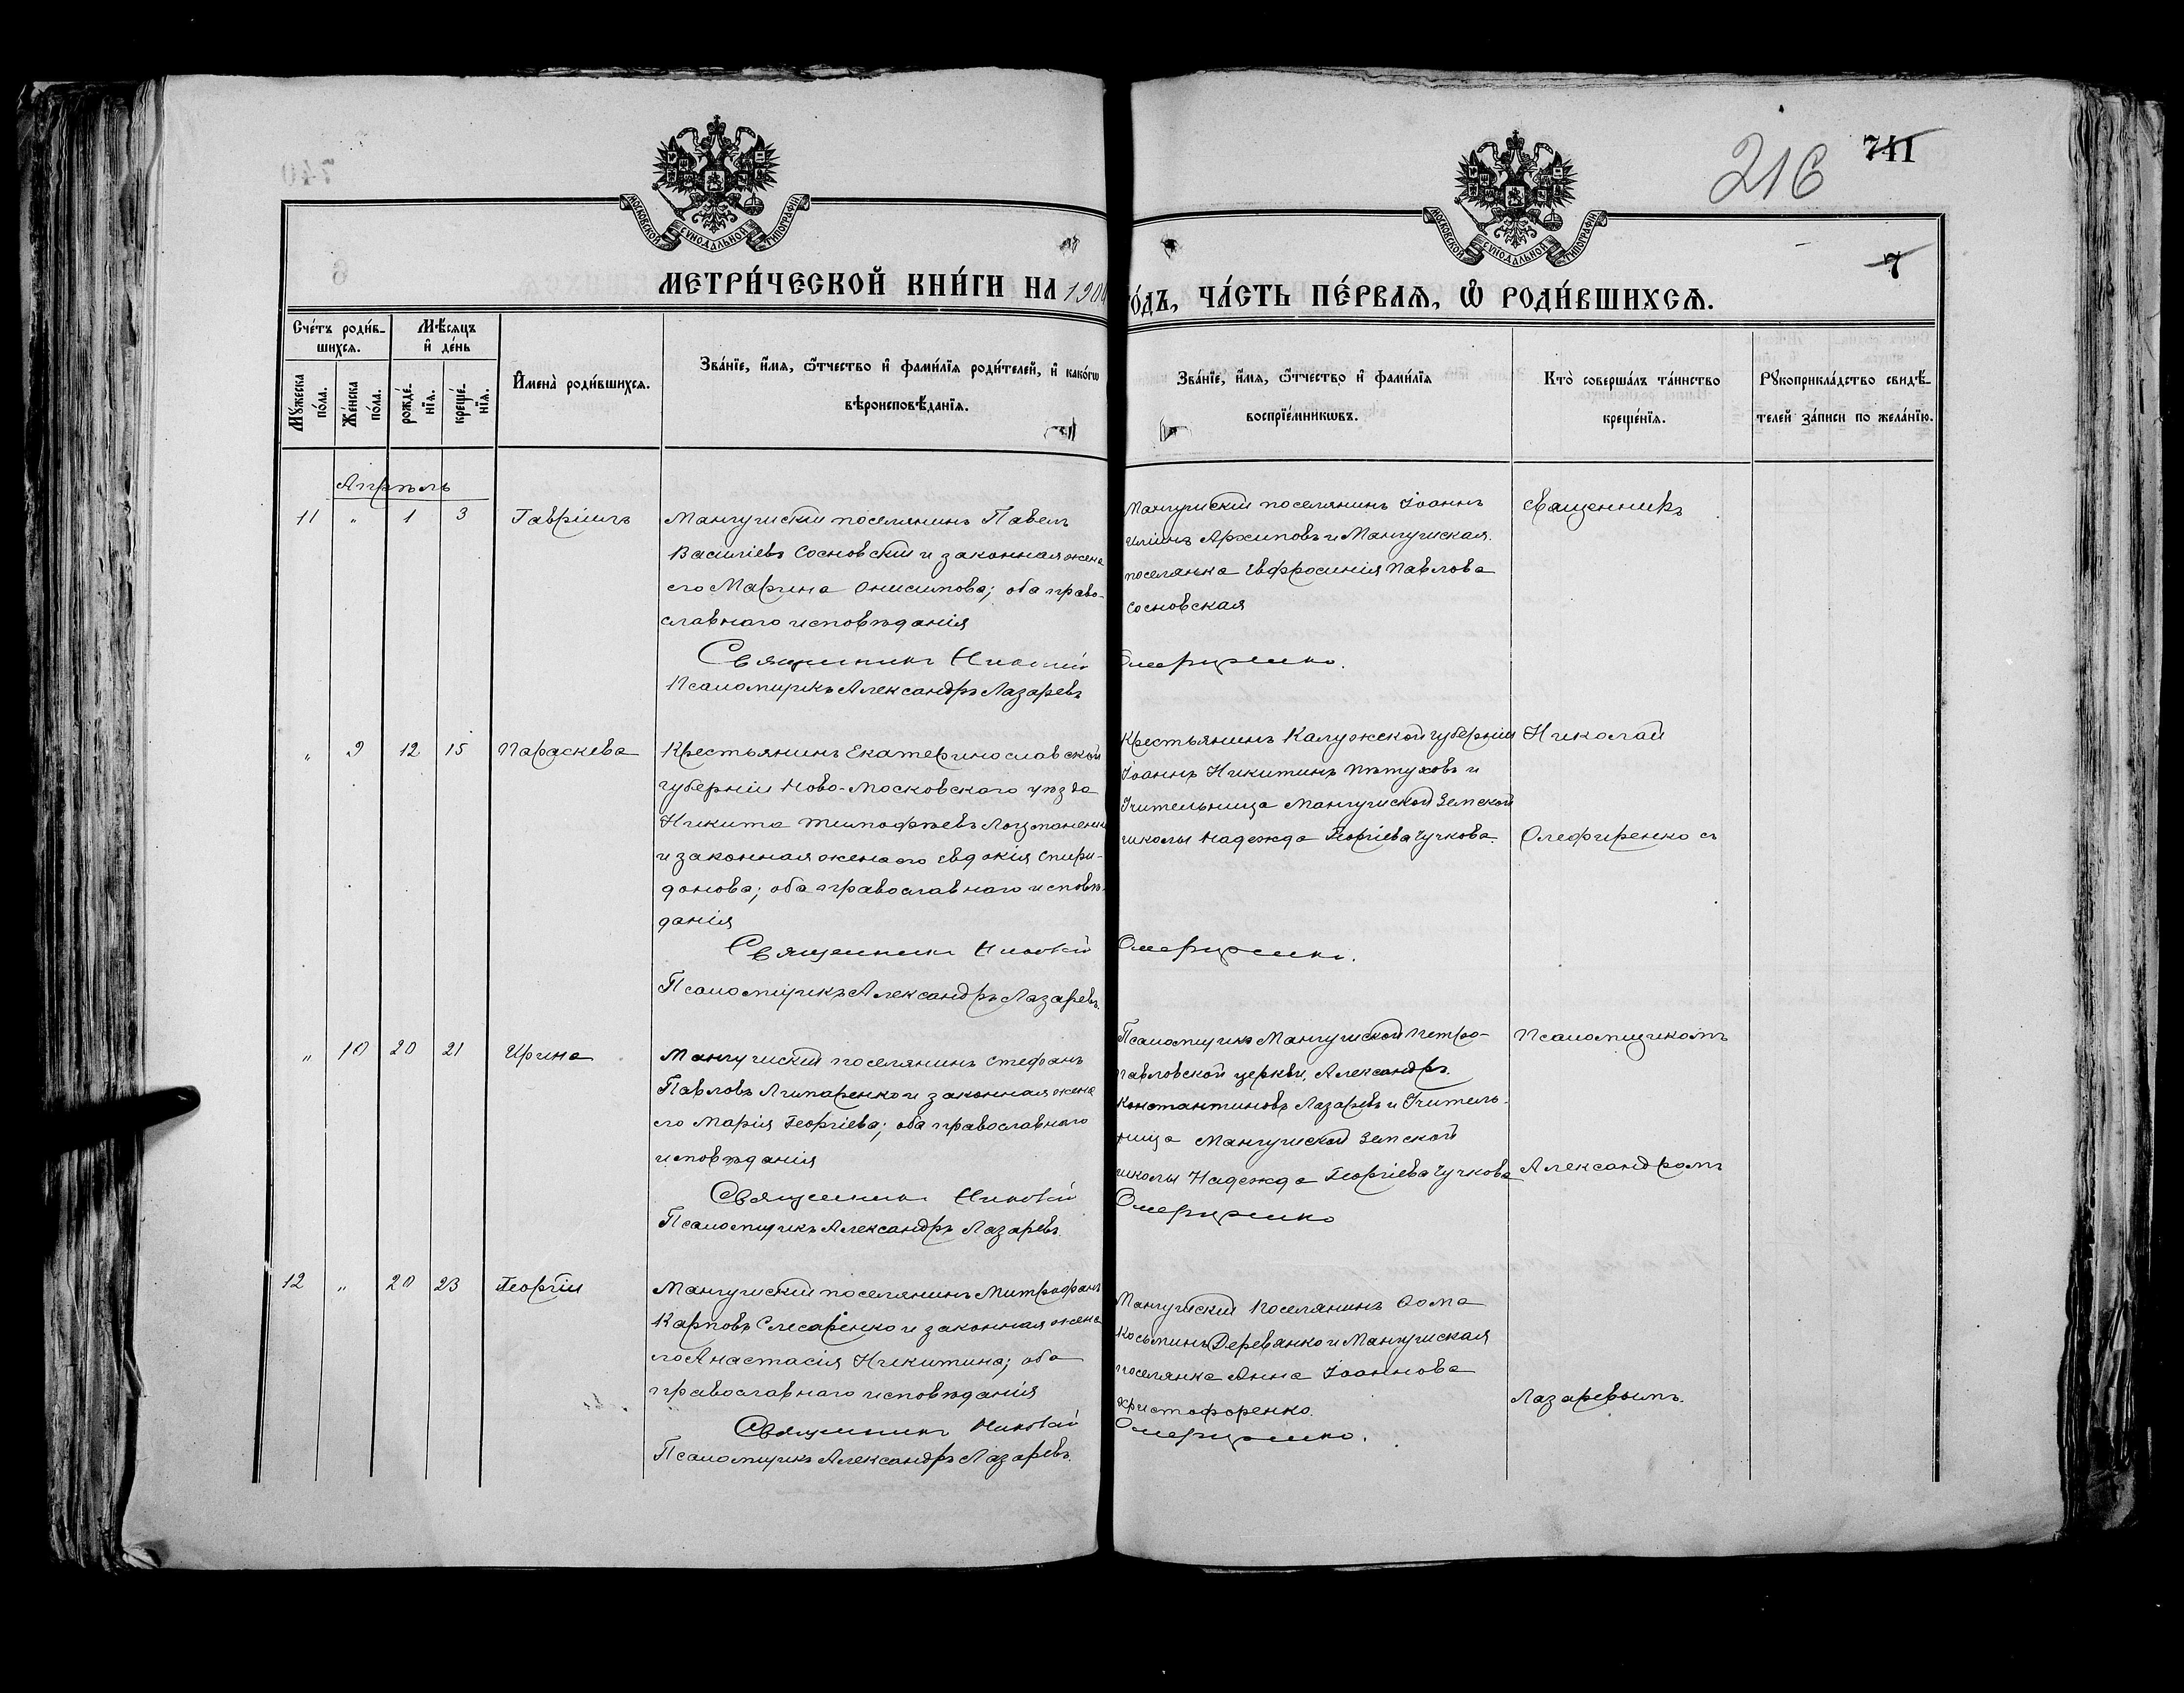 741
216
МОСКОВСКОЙ СѴНОДАЛЬНОЙ ТИПОГРАФІИ
МОСКОВСКОЙ СѴНОДАЛЬНОЙ ТИПОГРАФІИ
7
МЕТРИ́ЧЕСКОЙ КНИ́ГИ НА 190
О́ДЪ, ЧА́СТЬ ПЕ́РВАѦ, Ѽ РОДИ́ВШИХСѦ.
Сче́тъ роди́в-
шихсѧ.
Мѣ́сѧцъ
и҆ де́нь
Мꙋжеска
по́ла.
Же́нска
по́ла.
рожде́-
нїѧ.
креще́-
нїѧ.
И҆мена̀ роди́вшихсѧ.
Зва́нїе, и҆́мѧ, ѻ҆́тчество и҆ фами́лїѧ роди́телей, и҆ како́гѡ
вѣроисповѣ́данїѧ.
Зва́нїе, и҆́мѧ, ѻ҆́тчество и҆ фами́лїѧ
воспрїе́мникѡвъ.
Кто̀ соверша́лъ та́инство
креще́нїѧ.
Рꙋкоприкла́дство свидѣ́-
телей за́писи по жела́нїю.
Апрѣль
11 " 1 3 Гавріилъ
Мангушскій поселянинъ Павелъ
Василіевъ Сосновскій и законная жена
его Марина Онисимова; оба право-
славнаго исповѣданія
Священникъ Николай
Псаломщикъ Александръ Лазаревъ
Мангушскій поселянинъ Іоаннъ
Иліинъ Архиповъ и Мангушская
поселянка Евфросинія Павлова
Сосновская
Олефиренко.
Священникъ
" 9 12 15 Параскева
Крестьянинъ Екатеринославской
губерніи Ново-Московскаго уѣзда
Никита Тимофѣевъ
и законная жена его Евдокія Спири-
донова; оба православнаго исповѣ-
данія
Священникъ Николай
Псаломщикъ Александръ Лазаревъ.
Крестьянинъ Калужской губерніи
Іоаннъ Никитинъ Пѣтуховъ и
Учительница Мангушской Земской
школы Надежда Георгіева Чучкова.
Олефиренко.
Николай
Олефиренко съ
" 10 20 21 Ирина
Мангушскій поселянинъ Стефанъ
Павловъ Липаренко и законная жена
его Марія Георгіева; оба православнаго
исповѣданія
Священникъ Николай
Псаломщикъ Александръ Лазаревъ.
Псаломщикъ Мангушской Петро-
павловской церкви, Александръ
Константиновъ Лазаревъ и Учитель-
ница Мангушской Земской
школы Надежда Георгіева Чучкова
Олефиренко
Псаломщикомъ
Александромъ
12 " 20 23 Георгій
Мангушскій поселянинъ Митрофанъ
Карповъ Слесаренко и законная жена
его Анастасія Никитина; оба
православнаго исповѣданія
Священникъ Николай
Псаломщикъ Александръ Лазаревъ.
Мангушскій поселянинъ Ѳома
Косьминъ Деревянко и Мангушская
поселянка Анна Іоаннова
Христофоренко.
Олефиренко.
Лазаревымъ.